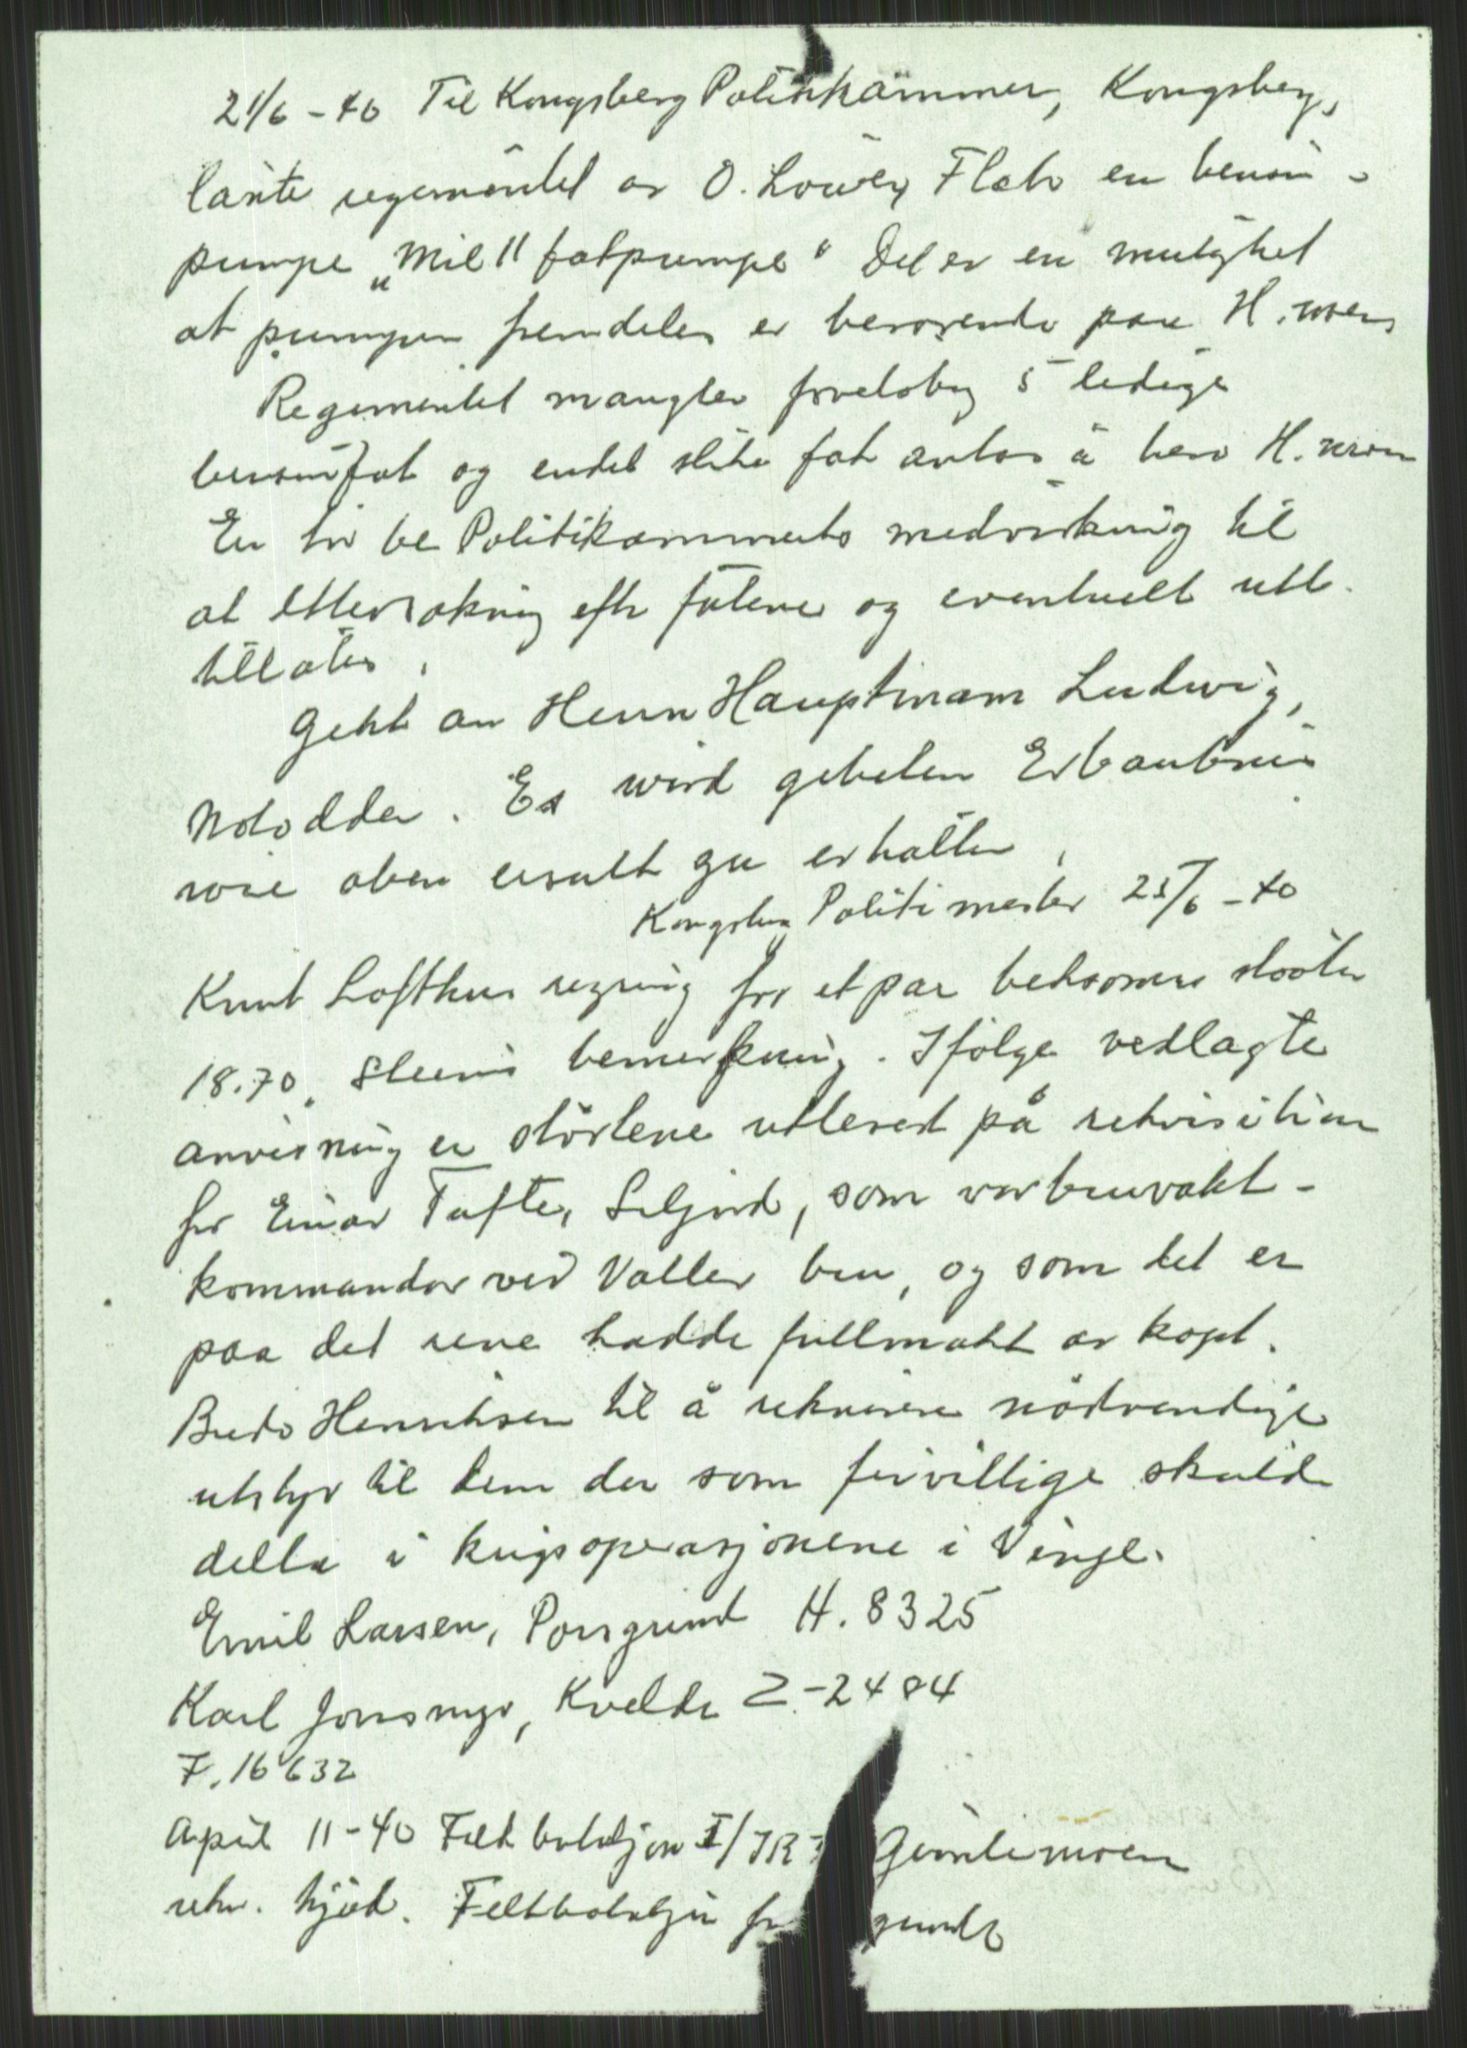 21/6-40 Til Kongsberg Politikammer, Kongsberg,
lånte regimentet av O. Flåte en bensin-
pumpe „Mil 11 fatpumpe" Det er en mulighet
at pumpen fremdeles er beroende paa H.moen
Regimentet mangler foreløbig 5 ledige
bensinfat og endel slike fat antas å bero H.moen
En tør be Politikammerets medvirkning til
at ettersøkning efter fatene og eventuelt utl.
tillates.
Geht an Herrn Hauptmann Ludwig,
Notodden. Es wird gebeten Erlaubnis
wie oben ersult zu erhalten.
Kongsberg Politimester 25/6-40
Knut Lofthus regning for et par beksømm støvler
18.70. Steens bemerkning. Ifølge vedlagte
anvisning er støvlene utlevert på rekvisition
fra Einar Tufte, Seljord, som var bruvakt-
kommandør ved Valler bru, og som det er
paa det rene hadde fullmakt av kapt.
Bredo Henriksen til å rekvirere nødvendige
utstyr til dem der som frivillige skulde
delta i krigsoperasjonene i Vinje.
Emil Larsen, Porsgrund H. 8325
Karl Jonsmyr, Kvelde Z-2484
F. 16632
April 11-40 Feltbataljon I/IR Gimlemoen
rekv. kjød. Feltbataljon